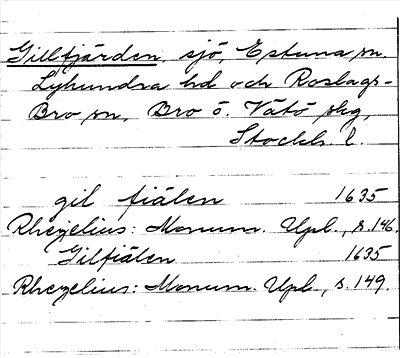 Gillfjärden, sjö, Estuna sn,
Lyhundra hd och Roslags-
Bro sn, Bro o. Vätö skg,
Stockh. l.
gil fiälen 1635
Rhezelius: Monum. Upl., s. 146.
Gilfiälen 1635
Rhezelius: Monum. Upl., s. 149.